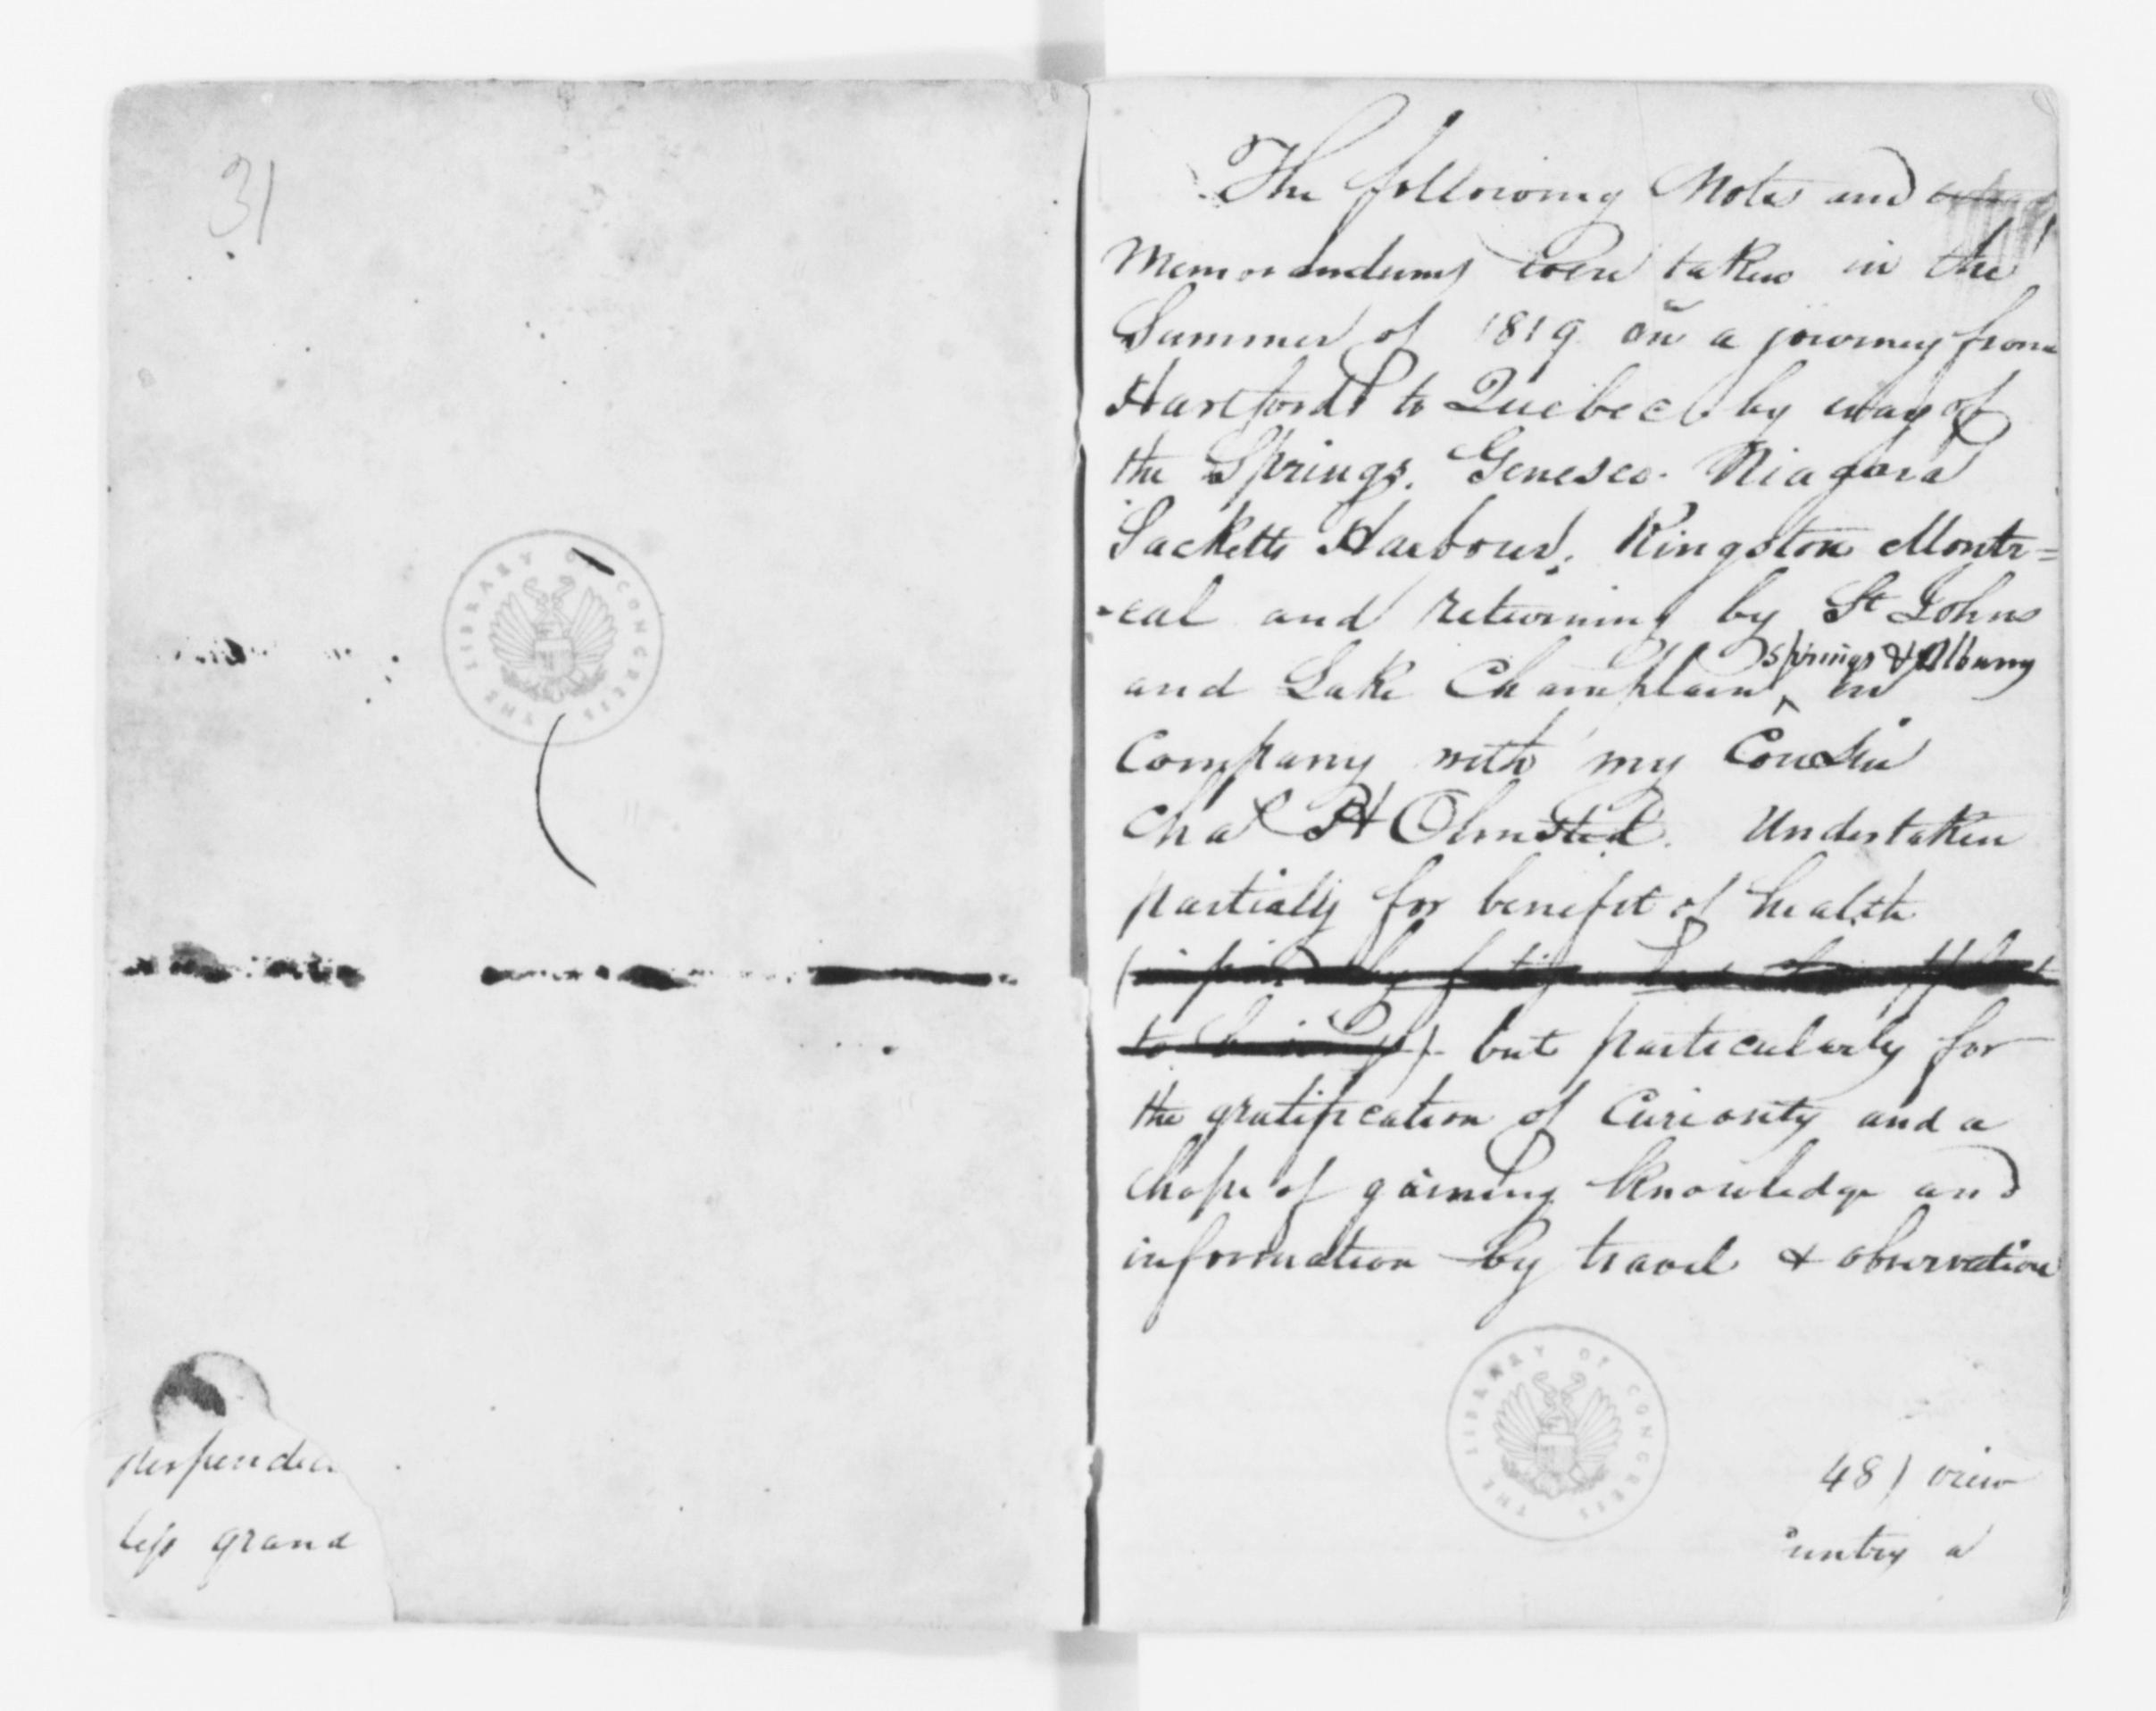 31
THE LIBRARY OF CONGRESS
perpendic
less grand
The following Notes and
Memorandums were taken in the
Summer of 1819 on a journey from
Hartford to Quebec by way of
the Springs. Geneseo. Niagara
Sacketts Harbour. Kingston Montr=
-eal and returning by St Johns
springs & Albany
and Lake Champlain ^ in
Company with my Cousin
Chas H Olmsted. Undertaken
partially for benefit of health
but particularly for
the gratification of Curiosity and a
hope of gaining knowledge and
information by travel & observation
THE LIBRARY OF CONGRESS
48) view
untry a